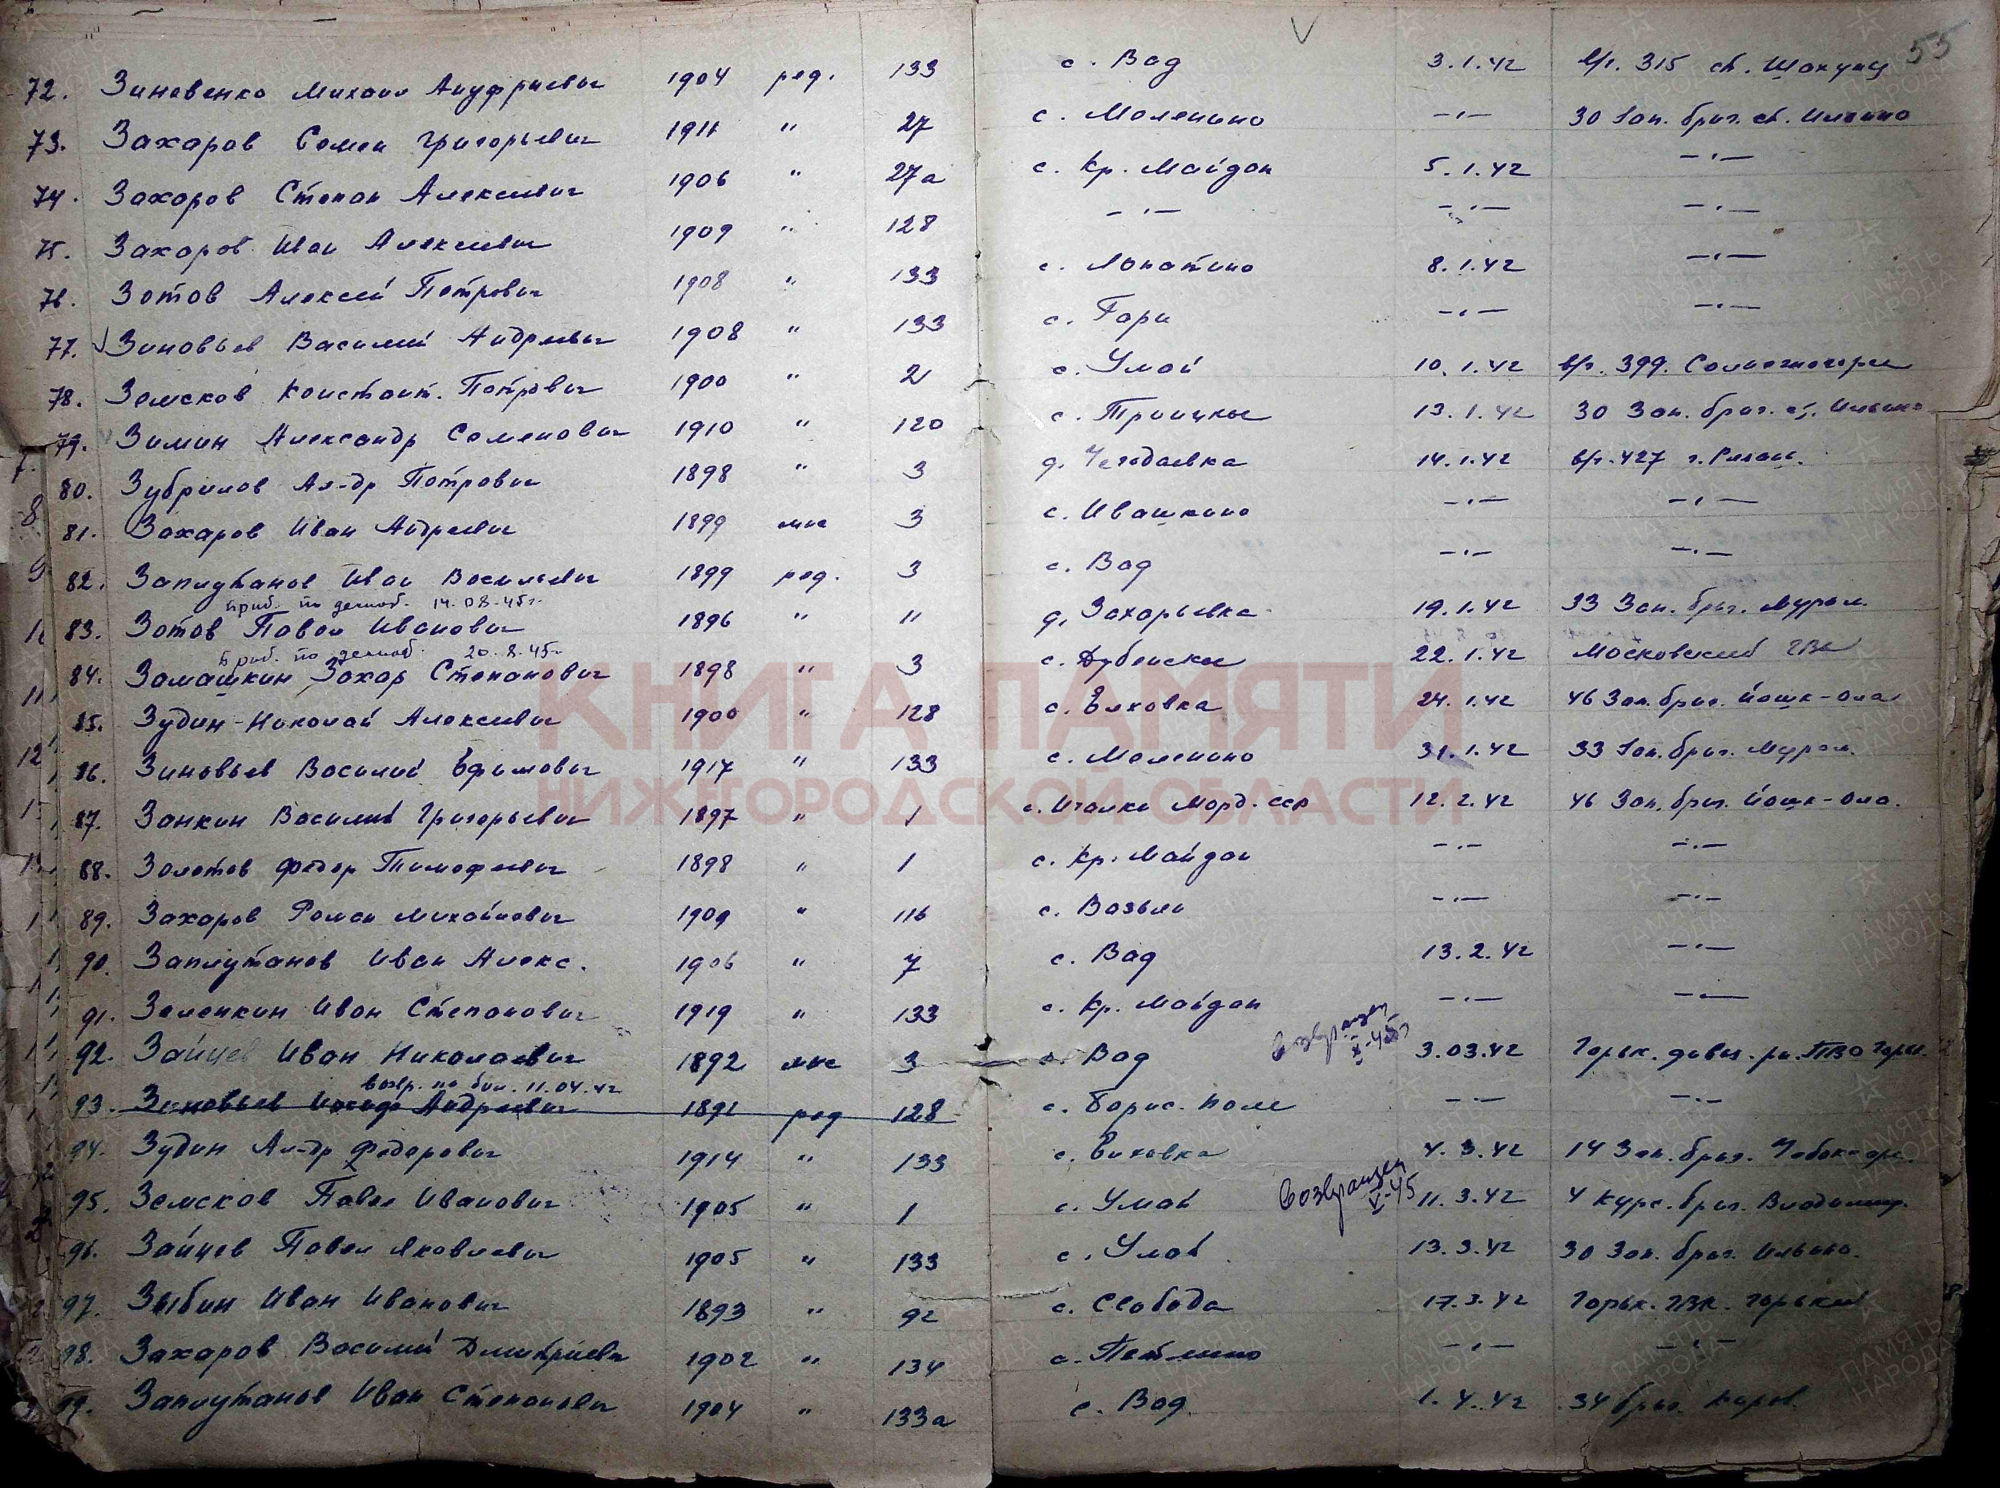 55
72. Зиновенко Михаил Ануфриевич 1904 ряд. 133 с. Вад 3.1.42 в/ч. 315 ст. Шахунья
73. Захаров Семен Григорьевич 1911 " 27 с. Моленино —"— 30 Зап. бриг. ст. Ильино
74. Захаров Степан Алексеевич 1906 " 27а с. Кр. Майдан 5.1.42 —"—
75. Захаров Иван Алексеевич 1909 " 128 —"— —"— —"—
76. Зотов Алексей Петрович 1908 " 133 с. Лопатино 8.1.42 —"—
77. Зиновьев Василий Андреевич 1908 " 133 с. Гари —"— —"—
78. Земсков Констант. Петрович 1900 " 2 с. Умай 10.1.42 в/ч. 399. Солнечногорск
79. Зимин Александр Семенович 1910 " 120 с. Троицкое 13.1.42 30 Зап. бриг. ст. Ильино
80. Зубрилов Ал-др Петрович 1898 " 3 д. Чегодаевка 14.1.42 в/ч. 427 г. Рязан.
81. Захаров Иван Андреевич 1899 мнс 3 с. Ивашкино —"— —"—
82. Заплутанов Иван Васильевич 1899 ряд. 3 с. Вад —"— —"—
Приб. по демоб. 14.08.45г.
83. Зотов Павел Иванович 1896 " 11 д. Захарьевка 19.1.42 33 Зап. бриг. Муром.
Приб. по демоб. 20.8.45г
84. Замашкин Захар Степанович 1898 " 3 с. Дубенское 22.1.42 Московский ГВК
85. Зудин Николай Алексеевич 1900 " 128 с. Елховка 24.1.42 46 Зап. бриг. Йошк-Ола
86. Зиновьев Василий Ефимович 1917 " 133 с. Моленино 31.1.42 33 Зап. бриг. Муром.
87. Занкин Василий Григорьевич 1897 " 1 с. Ичалки Морд. ССР 12.2.42 46 Зап. бриг. Йошк-Ола.
88. Золотов Федор Тимофеевич 1898 " 1 с. Кр. Майдан —"— —"—
89. Захаров Роман Михайлович 1909 " 116 с. Вазьян —"— —"—
90. Заплутанов Иван Алекс. 1906 " 7 с. Вад 13.2.42 —"—
91. Зеленкин Иван Степанович 1919 " 133 с. Кр. Майдан —"— —"—
Возвращен X-45г
92. Зайцев Иван Николаевич 1892 мнс 3 с. Вад 3.03.42 Горьк. дивиз. р-н ПВО Горьк.
возвр. по бол. 11.04.42
93. Зиновьев Андреевич 1892 ряд 128 с. Борис. Поле —"— —"—
94. Зудин Ал-др Федорович 1914 " 133 с. Елховка 4.3.42 14 Зап. бриг. Чебоксары.
Возвращен V-45
95. Земсков Павел Иванович 1905 " 1 с. Умай 11.3.42 4 курс. бриг. Владимир.
96. Зайцев Павел Яковлевич 1905 " 133 с. Умай 13.3.42 30 Зап. бриг. Ильино.
97. Зыбин Иван Иванович 1893 " 92 с. Слобода 17.3.42 Горьк. ГВК. Горький
98. Захаров Василий Дмитриевич 1902 " 134 с. Петлино —"— —"—
99. Заплутанов Иван Степанович 1904 " 133а с. Вад. 1.4.42 34 бриг. Киров.
КНИГА ПАМЯТИ
НИЖЕГОРОДСКОЙ ОБЛАСТИ
ПАМЯТЬ НАРОДА